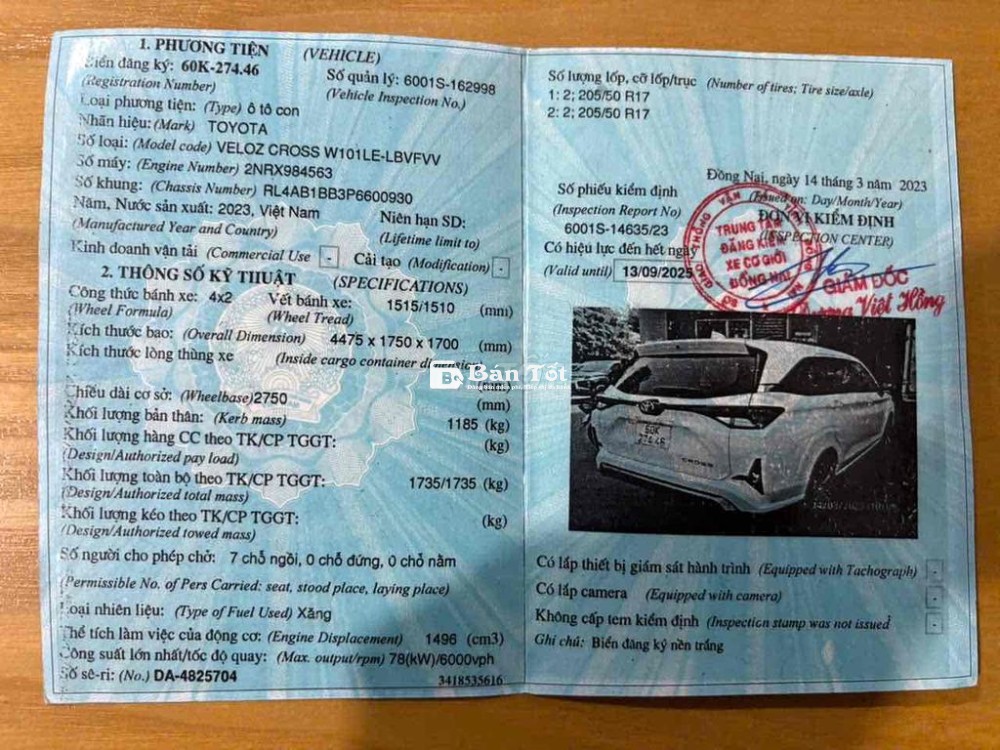 1. PHƯƠNG TIỆN (VEHICLE)
Biển đăng ký: 60K-274.46
(Registration Number)
Số quản lý: 6001S-162998
(Vehicle Inspection No.)
Loại phương tiện: (Type) ô tô con
Nhãn hiệu: (Mark) TOYOTA
Số loại: (Model code) VELOZ CROSS W101LE-LBVFVV
Số máy: (Engine Number) 2NRX984563
Số khung: (Chassis Number) RL4AB1BB3P6600930
Năm, Nước sản xuất: 2023, Việt Nam
(Manufactured Year and Country)
Niên hạn SD:
(Lifetime limit to)
Kinh doanh vận tải (Commercial Use - Cải tạo (Modification) -
2. THÔNG SỐ KỸ THUẬT (SPECIFICATIONS)
Công thức bánh xe: 4x2 Vết bánh xe: 1515/1510 (mm)
(Wheel Formula) (Wheel Tread)
Kích thước bao: (Overall Dimension) 4475 x 1750 x 1700 (mm)
Kích thước lòng thùng xe (Inside cargo container dimension)
(mm)
Chiều dài cơ sở: (Wheelbase)2750
Khối lượng bản thân: (Kerb mass) 1185 (kg)
Khối lượng hàng CC theo TK/CP TGGT: (kg)
(Design/Authorized pay load)
Khối lượng toàn bộ theo TK/CP TGGT: 1735/1735 (kg)
(Design/Authorized total mass)
Khối lượng kéo theo TK/CP TGGT: (kg)
(Design/Authorized towed mass)
Số người cho phép chở: 7 chỗ ngồi, 0 chỗ đứng, 0 chỗ nằm
(Permissible No. of Pers Carried: seat, stood place, laying place)
Loại nhiên liệu: (Type of Fuel Used) Xăng
Thể tích làm việc của động cơ: (Engine Displacement) 1496 (cm3)
Công suất lớn nhất/tốc độ quay: (Max. output/rpm) 78(kW)/6000vph
Số sê-ri: (No.) DA-4825704
3418535616
Bán Tốt
Số lượng lốp, cỡ lốp/trục (Number of tires; Tire size/axle)
1: 2; 205/50 R17
2: 2; 205/50 R17
Đồng Nai, ngày 14 tháng 3 năm 2023
(Issued on: Day/Month/Year)
Số phiếu kiểm định
(Inspection Report No)
6001S-14635/23
ĐƠN VỊ KIỂM ĐỊNH
(INSPECTION CENTER)
Có hiệu lực đến hết ngày
(Valid until) 13/09/2025
TRUNG TÂM
ĐĂNG KIỂM
XE CƠ GIỚI
ĐỒNG NAI
GIÁM ĐỐC
Việt Hồng
60K
274.46
CROSS
Có lắp thiết bị giám sát hành trình (Equipped with Tachograph) -
Có lắp camera (Equipped with camera) -
Không cấp tem kiểm định (Inspection stamp was not issued -
Ghi chú: Biển đăng ký nền trắng